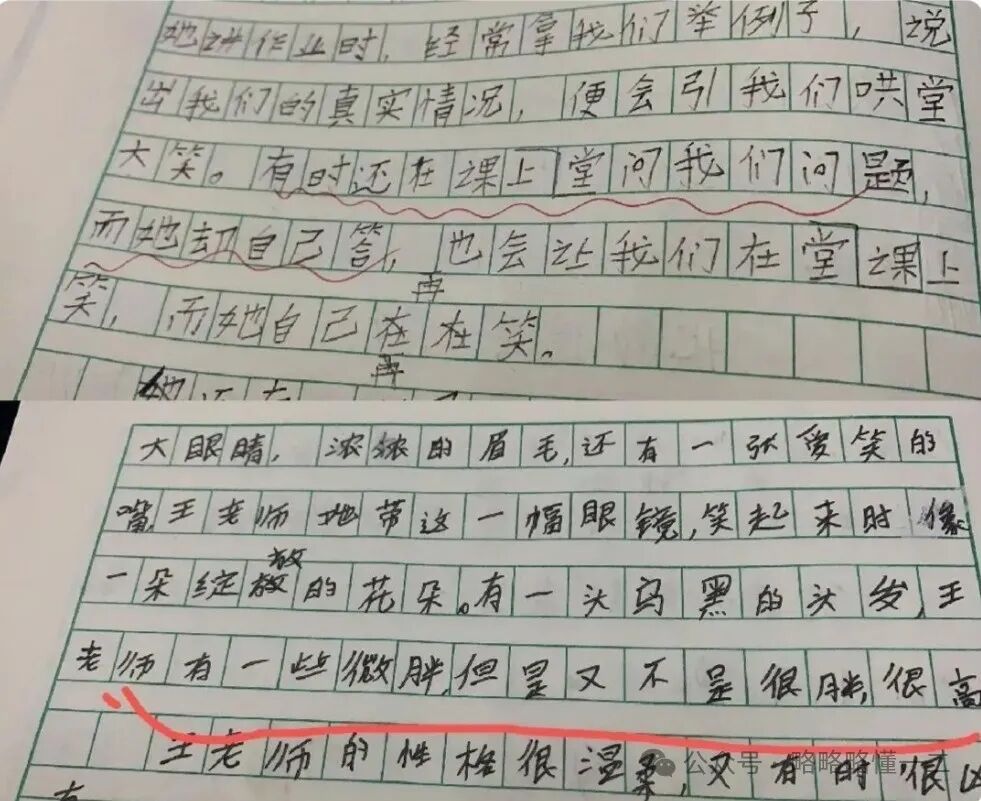 她讲作业时，经常拿我们举例子，说
出我们的真实情况，便会引我们哄堂
大笑。有时还在课上堂问我们问题，
而她却自己答，也会让我们在堂课上
再
笑，而她自己在在笑。
再
她还在
大眼睛，浓浓的眉毛，还有一张爱笑的
嘴，王老师地带这一幅眼镜，笑起来时像
放
一朵绽放的花朵。有一头乌黑的头发，王
老师有一些微胖，但是又不是很胖，很高
王老师的性格很温柔，又有时很凶
公众号·略略略懂一